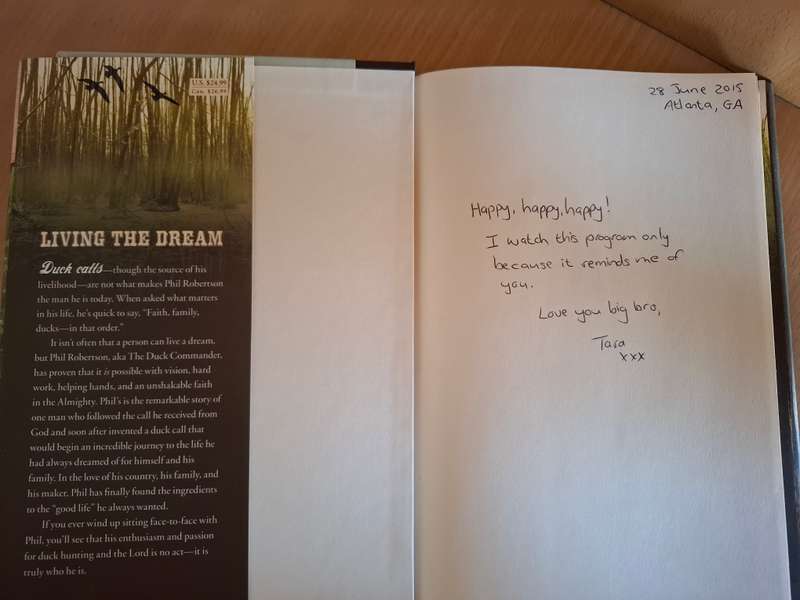 U.S. $24.99
Can. $26.99
LIVING THE DREAM
Duck calls—though the source of his
livelihood—are not what makes Phil Robertson
the man he is today. When asked what matters
in his life, he's quick to say, “Faith, family,
ducks—in that order.”
It isn't often that a person can live a dream,
but Phil Robertson, aka The Duck Commander,
has proven that it is possible with vision, hard
work, helping hands, and an unshakable faith
in the Almighty. Phil's is the remarkable story of
one man who followed the call he received from
God and soon after invented a duck call that
would begin an incredible journey to the life he
had always dreamed of for himself and his
family. In the love of his country, his family, and
his maker, Phil has finally found the ingredients
to the “good life” he always wanted.
If you ever wind up sitting face-to-face with
Phil, you'll see that his enthusiasm and passion
for duck hunting and the Lord is no act—it is
truly who he is.
28 June 2015
Atlanta, GA
Happy, happy, happy!
I watch this program only
because it reminds me of
you.
Love you big bro,
Tara
xxx